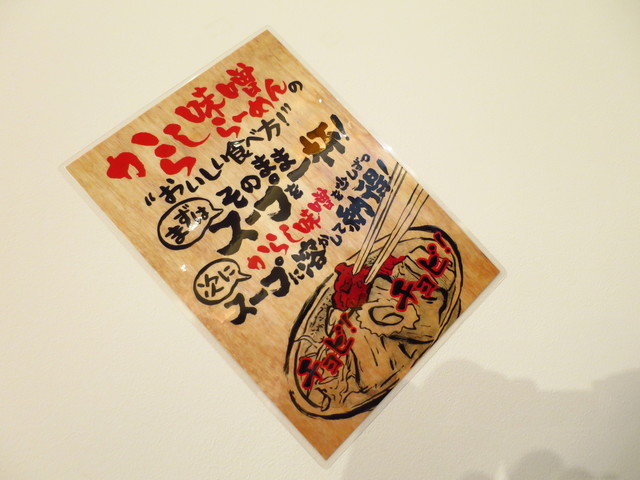 からし味噌
らーめんの
"おいしい食べ方!"
まずは
そのまま
スープを一杯!
次に
からし味噌を少しずつ
スープに溶かして納得!
チョビッ!
チョビッ!